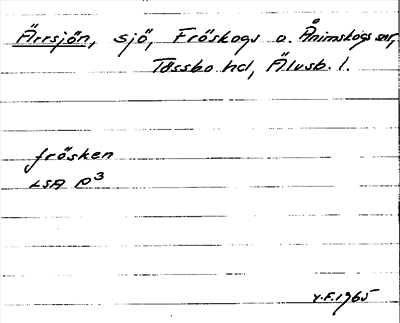 Ärrsjön, sjö, Fröskogs o. Ånimskogs snr,
Tössbo hd, Älvsb. l.
frösken
LSA P3
Y.F. 1965